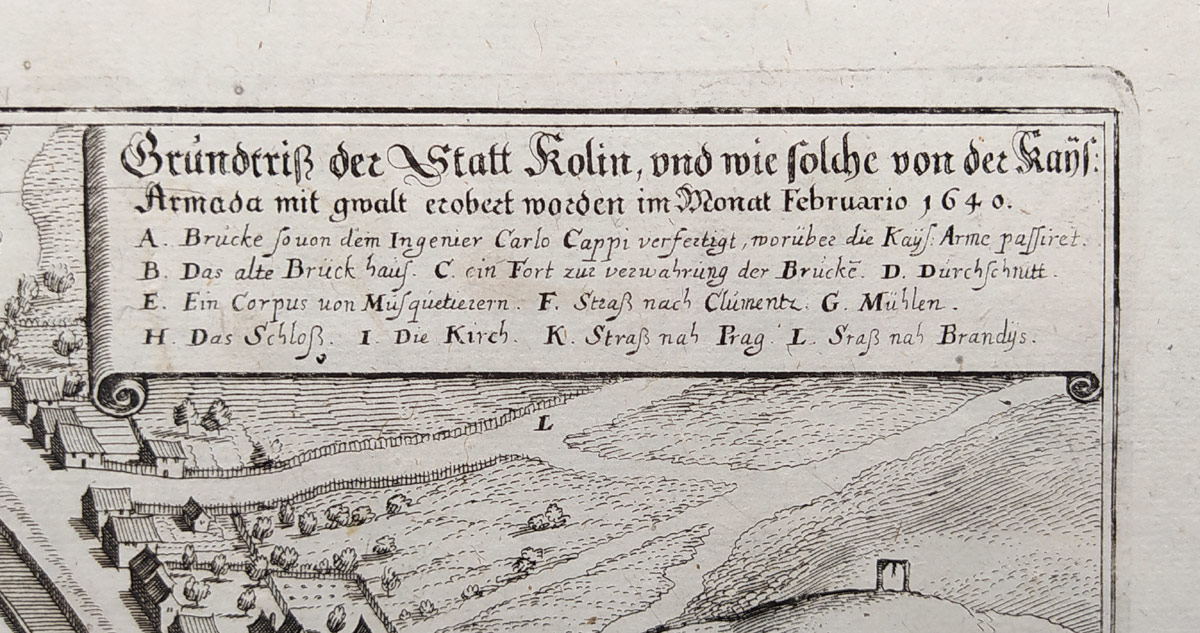 Grúndtriß der Statt Kolin, vnd wie solche von der Kaÿs:
Armada mit gwalt erobert worden im Monat Februario 1640.
A. Brúcke so von dem Ingenier Carlo Cappi verfertigt, worúber die Kaÿs: Arme passiret.
B. Das alte Brúck haús. C. ein Fort zur verwahrúng der Brúckē. D. Dúrchschnitt.
E. Ein Corpus von Músqúetierern. F. Straß nach Clúmentz. G. Múhlen.
H. Das Schloß. I. Die Kirch. K. Straß nah Prag. L. Sraß nah Brandÿs.
L